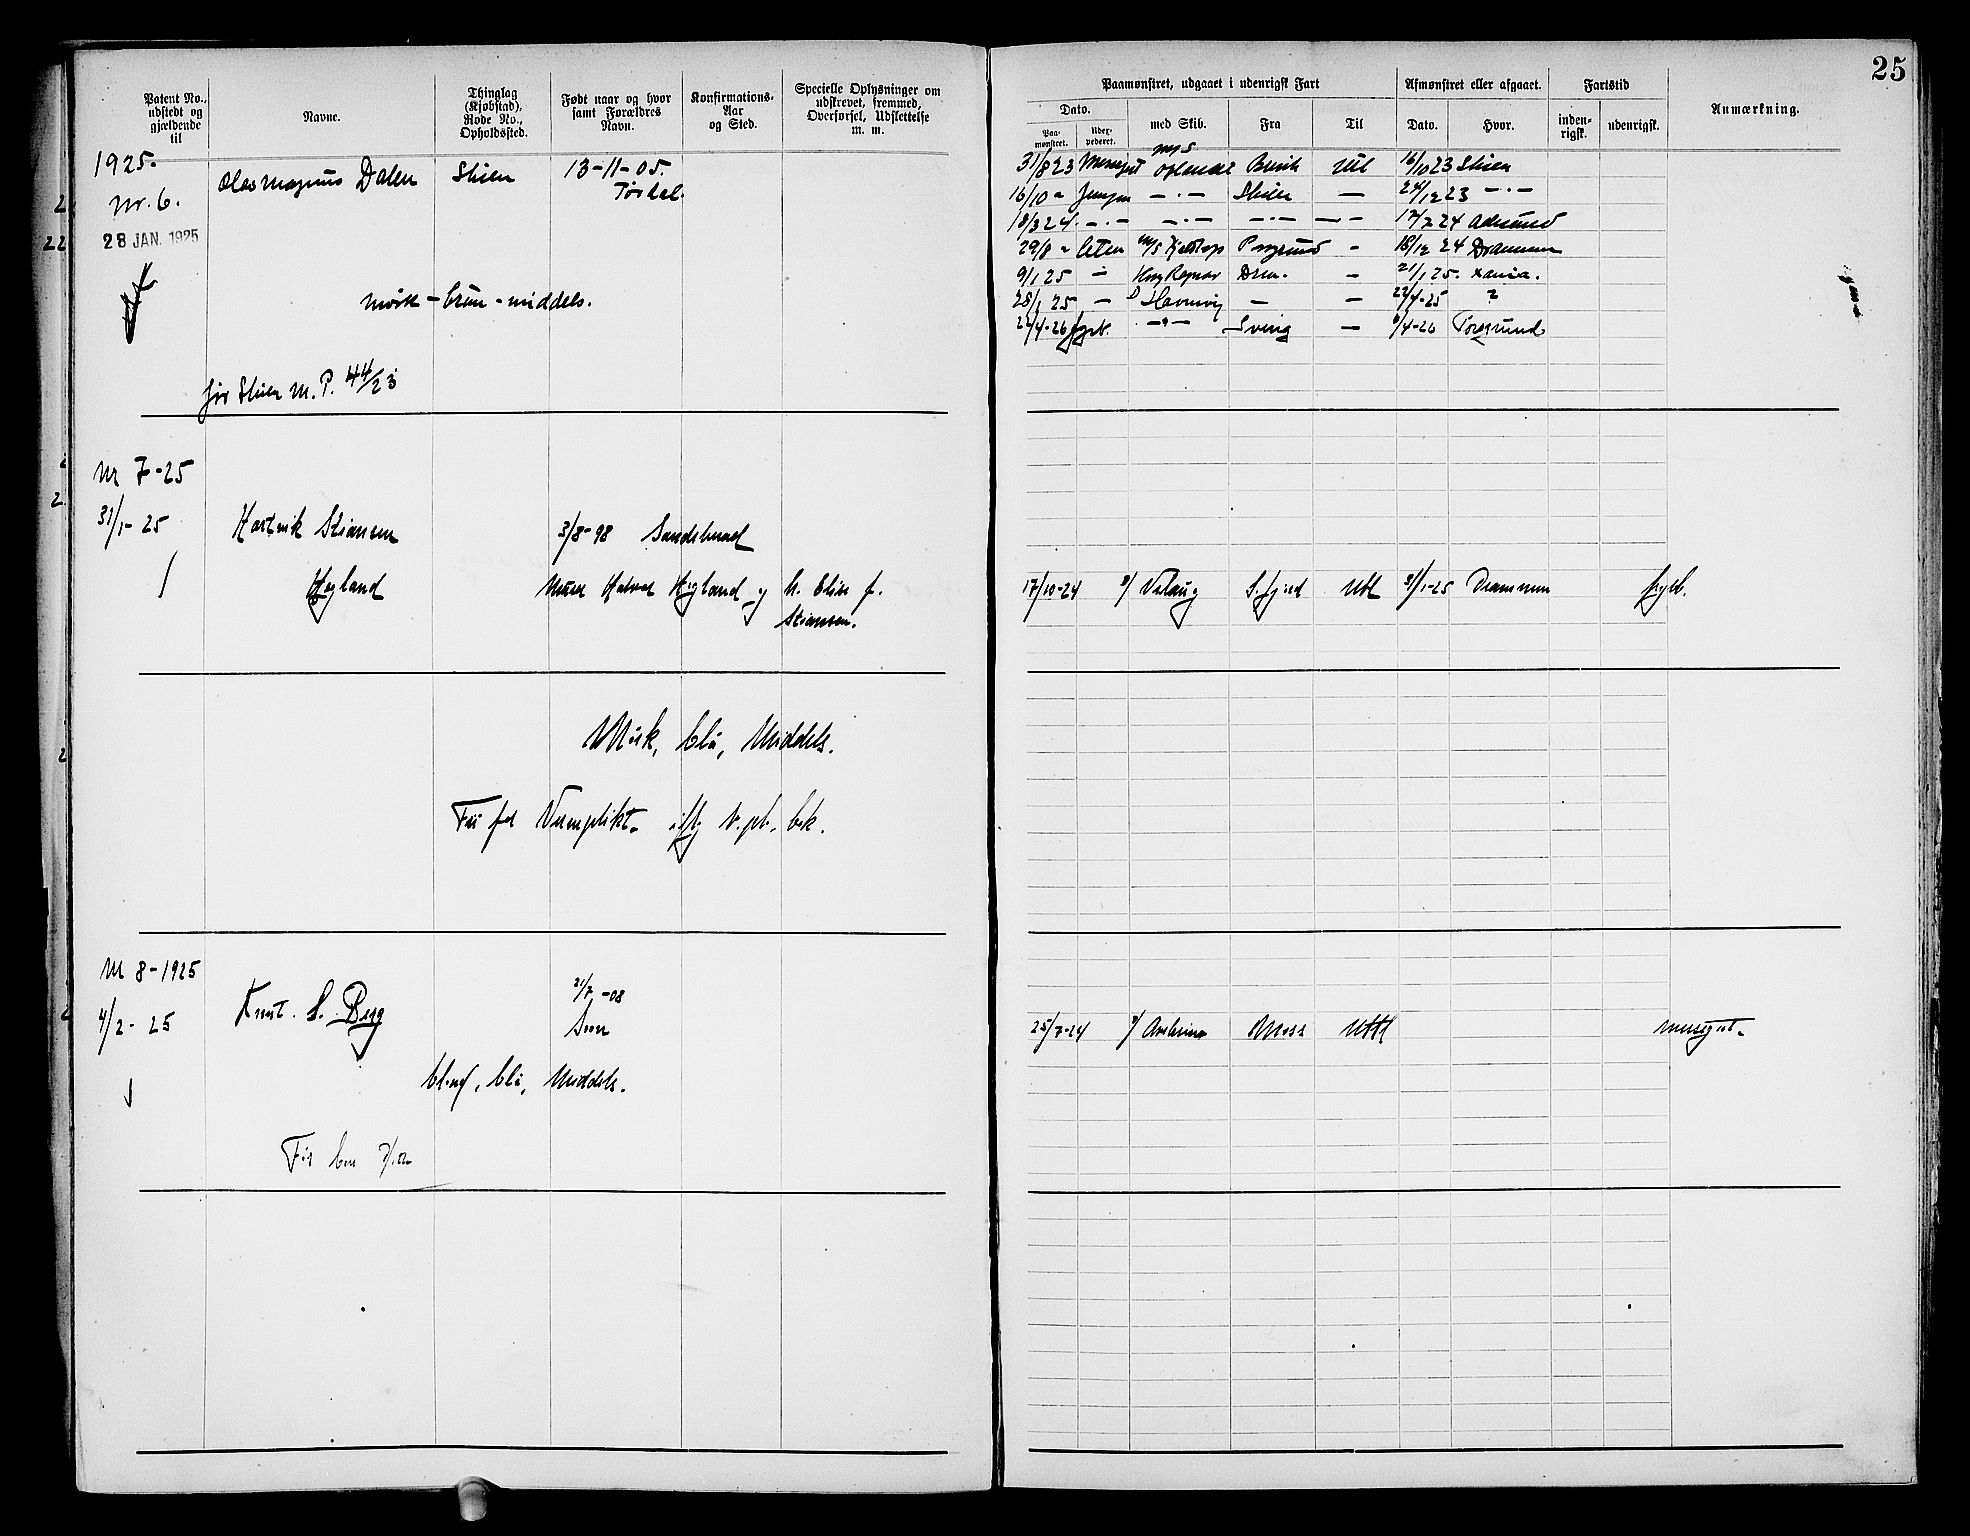 25
Patent No., udstedt og gjældende til
Navne.
Thinglag (Kjøbstad), Rode No., Opholdssted.
Født naar og hvor samt Forældres Navn.
Konfirmations-Aar og Sted.
Specielle Oplysninger om udskrevet, fremmed, Overførsel, Udslettelse m. m.
Paamønstret, udgaaet i udenrigsk Fart
Dato.
Paa-mønstret.
Uder-pederet.
med Skib.
Fra
Til
Afmønstret eller afgaaet.
Dato.
Hvor.
Fartstid
inden-rigsk.
udenrigsk.
Anmærkning.
1925.
Nr. 6.
28 JAN. 1925
Olav Magnus Dalen
Skien
13-11-05.
Tørdal.
mørk - brun - middels.
før Skien M.P. 44/23
31/8 23 Messegut M/S Oplandet Brevik Utl 16/10 23 Skien
16/10 " Jungm — · — Skien — 24/12 23 — · —
18/3 24 — · — — · — — · — — 17/7 24
29/8 " Porsgrund " 18/12 24 Drammen
9/1 25 " Kong Ragnar Drm. — 21/1 25. Xania.
28/1 25 — Havnvig — — 22/4-25 "
fyrb. — " — — /4-26 Porsgrund
Nr 7-25
31/1-25
Hartvik Stiansen
Høgland
3/8-98 Sandsherad
Murer Halvor Høgland og h. Elise f.
Stiansen.
17/10-24 S/ Valaug S.fjord Utl 31/1-25 Drammen fyrb.
Mørk, blå, Middels.
Fri for Vernplikt.
Nr 8-1925
4/2-25
Knut S. Berg
21/7-08
blond, blå, Middels.
25/7-24 Moss Utl messegut.